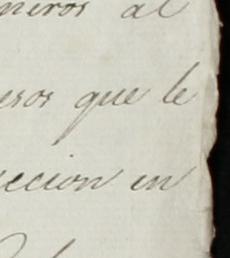 neros al
esos que le
eccion en